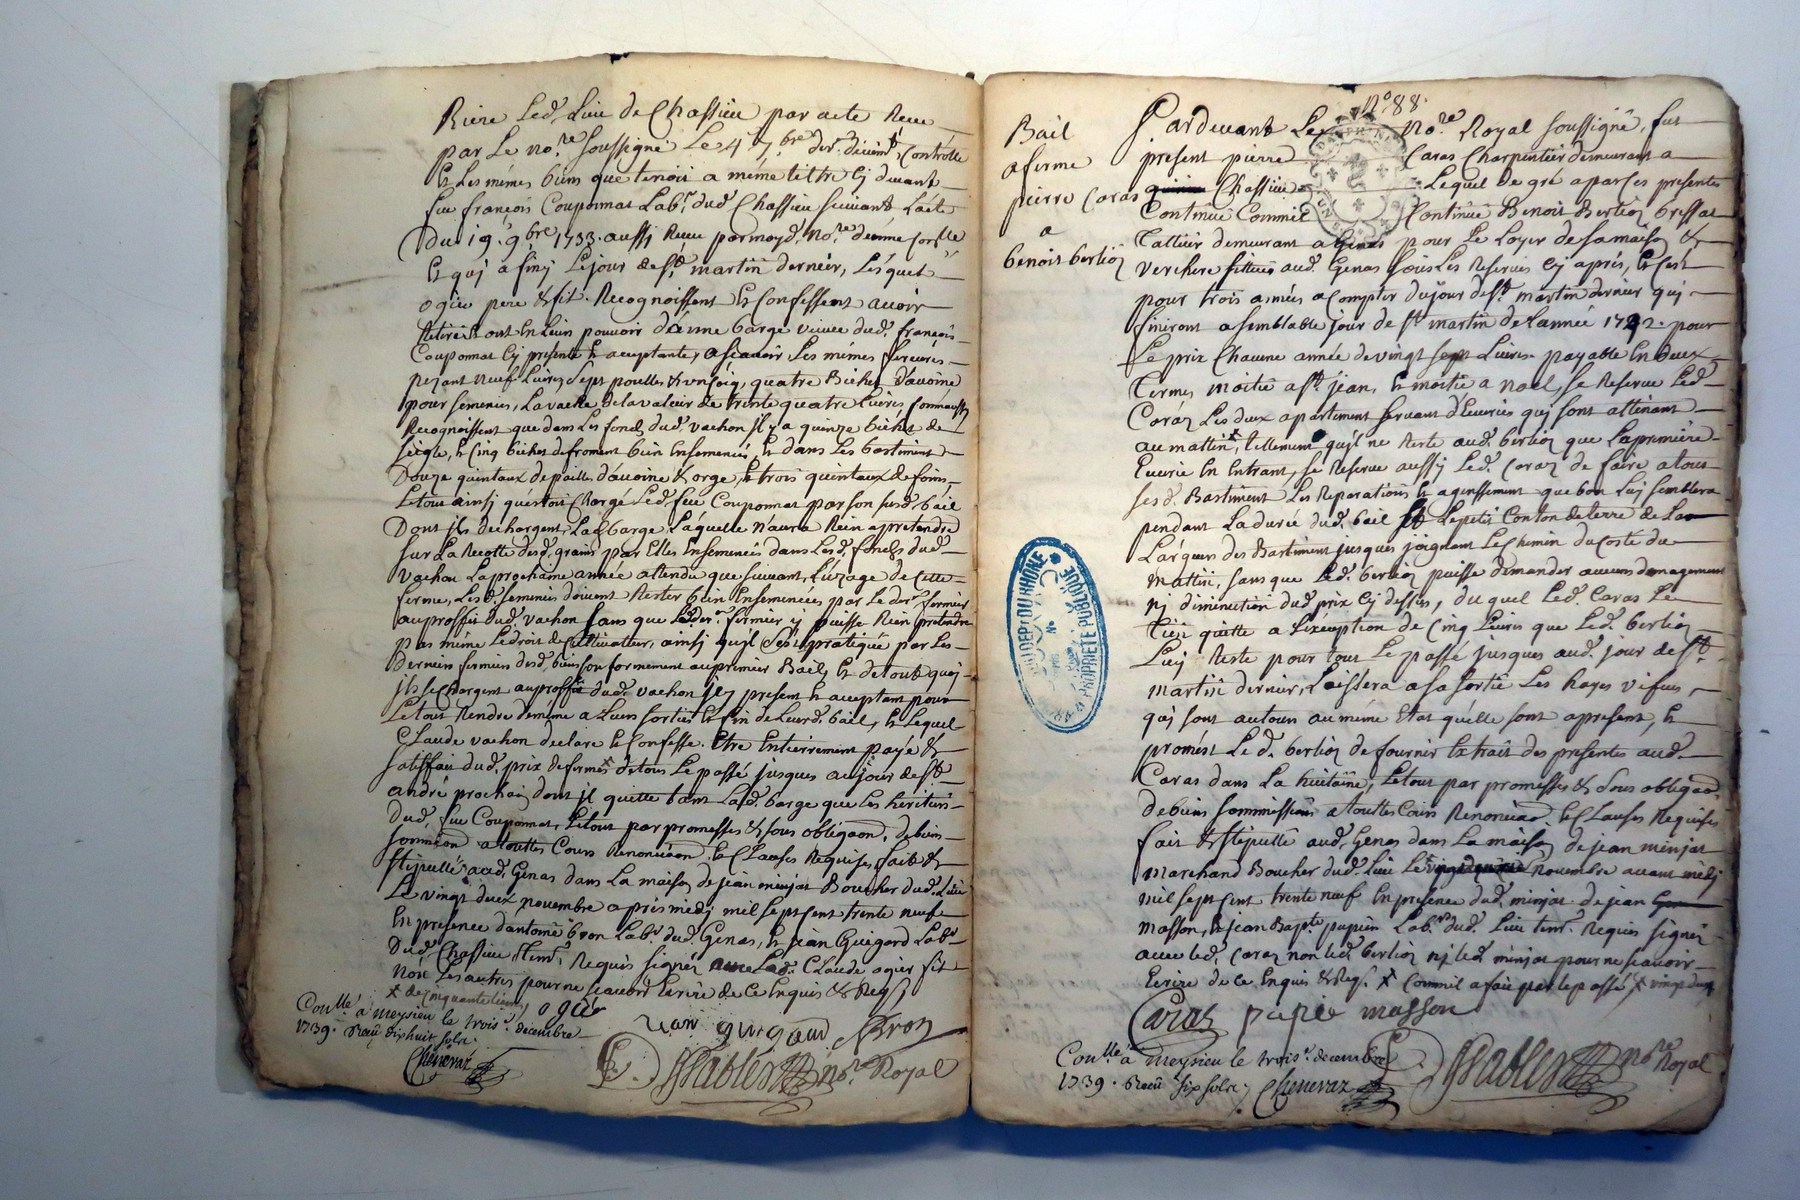 Riere Led. Lieu de Chassieu par acte Receu
par Le no.re soussigné Le 4e 7.bre der. controllé
Et Les mémes biens que tenoit a méme tiltre Cy devant
feu françois Couponnat Lab.r dud. Chassieu suivant L'acte
Du 19.e 9.bre 1733. aussi Receu par moyd. No.re
Et qui a finy Le jour de St. martin dernier, Lesquels
ogier pere & fils Recognoissent Et Confessent avoir
Retiré Et ont En Leur pouvoir d'anne barge veuve dud. françois
Couponnat Cy presente Et acceptante, ascavoir Les mémes
pezant neuf Livres Sept poulles & un Coiq, quatre Bichet D'avoine
pour semences, La vache de la valeur de trente quatre Livres,
Recognoissent que dans Les fonds dud. vachon Il y a quinze bichet de
seigle, & Cinq bichet de froment bien Ensemencés, & dans Les bastiment
Douze quintaux de pailles d'avoine & orge, & trois quintaux de foins,
Le tout ainsi qu'estoit Chargé Led. feu Couponnat par son susd. bail
Dont ils dechargent Lad. barge Laquelle n'aura Rien a pretendre
sur La Recolte desd. grains par Elles Ensemencés dans Lesd. fonds dud.
vachon La prochaine année attendu que suivant L'uzage de Cette
ferme, Les d. semences doivent Rester bien Ensemencées par Le der. fermier
au proffit dud. vachon sans que Led. der. fermier y puisse Rien pretendre
pas méme Le droit de Cultivateur, ainsi qu'il s'est pratiqué par Les
derniers fermiers desd. biens Conformement au premier Bail, Et de tout quoy
ils se Chargent au proffit dud. vachon icy present & acceptant pour
Le tout Rendre de méme a Leur sortie Et fin de Leurd. bail, Et Lequel
Claude vachon declare & Confesse Etre Entierement payé &
satisfait dud. prix de ferme de tous Le passé jusques au jour de St.
andré prochain dont il quitte tant Lad. barge que Les heritiers
Dud. feu Couponnat, Le tout par promesses & sous obligaon. de biens
sommission a touttes Cours Renonciaon. & Clauses Requises fait &
stipullé aud. Genas dans La maison de jean minjat Boucher dud. Lieu
Le vingt deux novembre aprés medi mil sept cent trente neuf
En presence d'antoine bron Lab.r dud. Genas, & jean Guigard Lab.r
Dud. Chassieu temt. Requis signés avec Led. Claude ogier fils
non Les autres pour ne scavoir Ecrire de Ce Enquis & Req.
ogier
jean guigard Bron
Con.llé a meysieu le trois.e decembre
1739. Receu dix huit sols
Cheneraz
Sables no.re Royal
N.o 88.
Bail
a ferme
pierre Caras
a
benoit berlioz
Pardevant Le No.re Royal soussigné, fut
present pierre Caras Charpentier demeurant a
Chassieu Lequel de gré a par Ces presentes
Continue Comme Continüe Benoit Berlioz bressat
demeurant a Genas pour Le Loyer de sa maison &
verchere scittuée aud. Genas sous Les Reserves Cy aprés, Et C'est
pour trois années a Compter du jour de St. martin dernier qui
finiront a semblable jour de St. martin de L'année 1742. pour
Le prix Chacune année de vingt sept Livres payable En deux
Termes moitié a St. jean, Et moitié a noel, se Reserve Led.
Caras Les deux apartement servant d'Ecuries qui sont attenant
au mattin, tellement qu'il ne Reste aud. berlioz que La premiere
Ecurie En Entrant, se Reserve aussy Led. Caras de faire a tous
sesd. Bastiment Les Reparations & agencement que bon Luy semblera
pendant La durée dud. bail Le petit Canton de terre de La
Largeur des Bastiment jusques joignant Le Chemin du Costé du
Mattin, sans que Led. berlioz puisse demander aucun domagement
ni diminution dud. prix Cy dessus, duquel Led. Caras Le
Tien quitte a L'exception de Cinq Livres que Led. berlioz
Luy Reste pour tous Le passé jusques aud. jour de St.
martin dernier, Laissera a sa sortie Les hayes vifves
qui sont autour au méme Etat qu'elle sont a present, Et
promést Led. berlioz de fournir Extrait des presentes aud.
Caras dans La huitaine, Le tout par promesses & sous obligaon.
de biens sommissions a touttes Cours Renonciaon. & Clauses Requises
fait & stipullé aud. Genas dans La maison de jean minjat
marchand Boucher dud. Lieu Le novembre avant medy
mil sept cent trente neuf En presence dud. minjat de jean
masson, & jean Bap.te papien Lab.r dud. Lieu temt. Requis signéz
avec Led. Caras non Led. berlioz ni Led. minjat pour ne scavoir
Ecrire de Ce Enquis & Req. Comme il a fait par le passé
Caras papie masson
Con.llé a meysieu le trois.e decembre
1739. Receu six sols Cheneraz
Sables no.re Royal
ARCHIVES DU DEPT DU RHÔNE
PROPRIETE PUBLIQUE